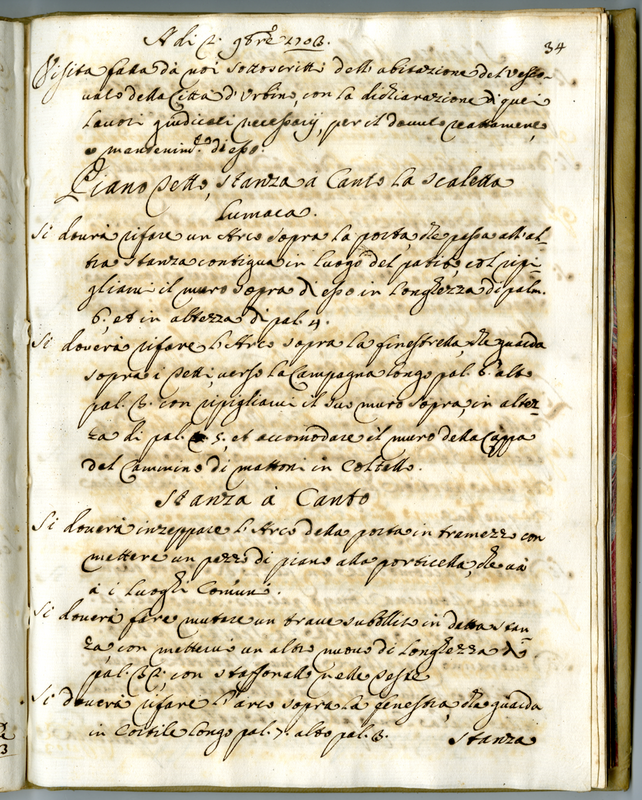 A di 2. 9bre 1703.
34
Visita fatta da noi sottoscritti dell'abitazione del Vesco-
vato della Città d'Urbino, con la dichiarazione di quei
lavori giudicati necessarij, per il dovuto riattamento,
e mantenim.to di esso.
Piano detto, stanza à Canto la scaletta
Lumaca.
Si dovrà rifare un Arco sopra la porta, che passa all'al-
tra stanza contigua in luogo del patito, col ripi-
gliarvi il muro sopra di esso in longhezza di palm.
6, et in altezza di pal. 4.
Si doverà rifare l'Arco sopra la finestrella, che guarda
sopra i tetti, verso la Campagna longo pal. 6. alto
pal. 3. con ripigliarvi il suo muro sopra in altez-
za di pal. 5, et accomodare il muro della Cappa
del Cammino di mattoni in Coltello.
Stanza à Canto
Si doverà inzeppare l'Arco della porta in tramezzo con
mettere un pezzo di piano alla porticella, che và
à i luoghi Comuni.
Si doverà fare mutare un trave subollito in detta stan-
za, con mettervi un altro nuovo di longhezza di
pal. con staffonale nelle teste
Si doverà rifare l'arco sopra la fenestra, che guarda
in Cortile longo pal. 7. alto pal. 3.
Stanza
3